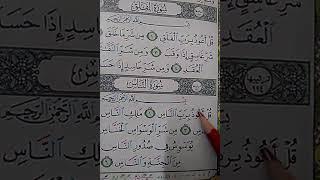 سُورَةُ الْفَلَقِ
بِسْمِ اللَّهِ الرَّحْمَٰنِ الرَّحِيمِ
قُلْ أَعُوذُ بِرَبِّ الْفَلَقِ ۝ مِن شَرِّ مَا خَلَقَ
شَرِّ غَاسِقٍ إِذَا وَقَبَ ۝ وَمِن شَرِّ
الْعُقَدِ ۝ وَمِن شَرِّ حَاسِدٍ إِذَا حَسَدَ
سُورَةُ النَّاسِ
ترتيبها ١١٤
بِسْمِ اللَّهِ الرَّحْمَٰنِ الرَّحِيمِ
قُلْ أَعُوذُ بِرَبِّ النَّاسِ ۝ مَلِكِ النَّاسِ
مِن شَرِّ الْوَسْوَاسِ الْخَنَّاسِ
يُوَسْوِسُ فِي صُدُورِ النَّاسِ
مِنَ الْجِنَّةِ وَالنَّاسِ